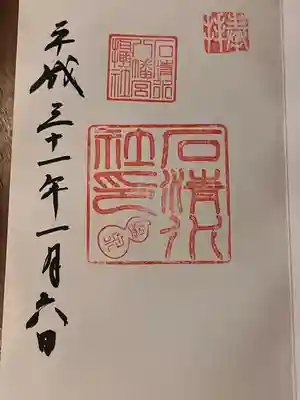 奉拝
石清水
八幡宮
攝社
石清水
社印
平成三十一年一月六日